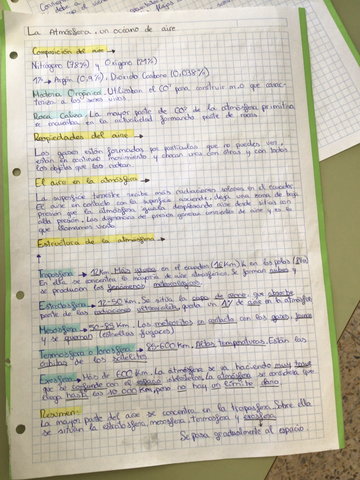 La Atmósfera, un océano de aire
Composición del aire →
Nitrógeno (78%) y Oxígeno (21%)
1% → Argón (0,9%), Dióxido Carbono (0,038%)
Materia Orgánica. Utilizan el CO² para construir m.o que
a los seres vivos.
Roca Caliza. La mayor parte de CO² de la atmósfera primitiva
se encuentra en la actualidad formando parte de rocas.
Propiedades del aire →
Los gases están formados por partículas que no pueden ver y
están en continuo movimiento y chocan unas con otras y con todos
los objetos que les rodean.
El aire en la atmósfera →
La superficie terrestre recibe más radiaciones solares en el ecuador.
El aire en contacto con la superficie asciende, deja una zona de baja
presión que la atmósfera iguala desplazando aire desde sitios con
alta presión. Las diferencias de presión generan corrientes de aire y es lo que
llamamos viento.
Estructura de la atmósfera →
Troposfera → 12Km. Más gruesa en el ecuador (16Km) y en los polos
En ella se concentra la mayoría de aire atmosférico. Se forman nubes y
se producen los fenómenos meteorológicos.
Estratosfera → 12-50 km. Se sitúa la capa de ozono, que absorbe
parte de las radiaciones ultravioleta, aire en la atmósfera
Mesosfera → 50-85 Km. Los meteoritos en contacto con los gases,
y se queman (estrellas fugaces)
Termosfera o Ionosfera → 85-600 km. Altas temperaturas. Están las
órbitas de los satélites
Exosfera → Más de 600 Km. La atmósfera se va haciendo muy tenue
que se confunde con el espacio. La atmósfera se considera que
llega hasta los 10 000 Km, pero no hay un límite claro.
Resumen:
La mayor parte del aire se concentra en la troposfera. Sobre ella
se sitúan la estratosfera, mesosfera, termosfera y exosfera.
Se pasa gradualmente al espacio.